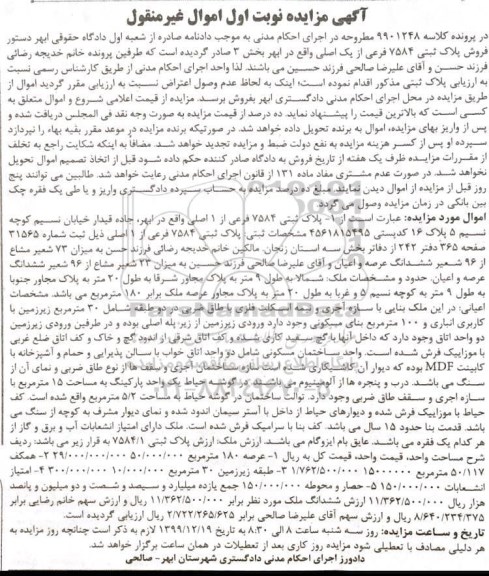 آگهی مزایده نوبت اول اموال غیرمنقول
در پرونده کلاسه ۹۹۰۱۲۴۸ مطروحه در اجرای احکام مدنی به موجب دادنامه صادره از شعبه اول دادگاه حقوقی ابهر دستور
فروش پلاک ثبتی ۷۵۸۴ فرعی از یک اصلی واقع در ابهر بخش ۳ صادر گردیده است که طرفین پرونده خانم خدیجه رضائی
فرزند حسن و آقای علیرضا صالحی فرزند حسین می باشند. لذا واحد اجرای احکام مدنی از طریق کارشناس رسمی نسبت
به ارزیابی پلاک ثبتی مذکور اقدام نموده است؛ اینک به لحاظ عدم وصول اعتراض نسبت به ارزیابی مقرر گردید اموال از
طریق مزایده در محل اجرای احکام مدنی دادگستری ابهر بفروش برسد. مزایده از قیمت اعلامی شروع و اموال متعلق به
کسی است که بالاترین قیمت را پیشنهاد نماید. ده درصد از قیمت مزایده به صورت وجه نقد فی المجلس دریافت شده و
پس از واریز بهای مزایده، اموال به برنده تحویل داده خواهد شد. در صورتیکه برنده مزایده در موعد مقرر بقیه بهاء را نپردازد
سپرده او پس از کسر هزینه مزایده به نفع دولت ضبط و مزایده تجدید خواهد شد. مضافا به اینکه شکایت راجع به تخلف
از مقررات مزایده ظرف یک هفته از تاریخ فروش به دادگاه صادر کننده حکم داده شود قبل از اتخاذ تصمیم اموال تحویل
نخواهد شد. در صورت عدم مشتری مفاد ماده ۱۳۱ از قانون اجرای احکام مدنی رعایت خواهد شد. طالبین می توانند پنج
روز قبل از مزایده از اموال دیدن نمایند. مبلغ ده درصد مزایده به حساب سپرده دادگستری واریز و یا طی یک فقره چک
بین بانکی در زمان مزایده وصول می گردد
اموال مورد مزایده: عبارت است از ۱- پلاک ثبتی ۷۵۸۴ فرعی از ۱ اصلی واقع در ابهر، جاده قیدار خیابان نسیم کوچه
نسیم ۵ پلاک ۱۶ کدپستی ۴۵۶۱۸۱۵۳۹۵ مشخصات ثبتی: پلاک ثبتی ۷۵۸۴ فرعی از ۱ اصلی ذیل ثبت شماره ۳۱۵۶۵
صفحه ۳۶۵ دفتر ۲۴۲ از دفاتر بخش سه استان زنجان. مالکین خانم خدیجه رضائی فرزند حسن به میزان ۷۳ شعیر مشاع
از ۹۶ شعیر ششدانگ عرصه و اعیان و آقای علیرضا صالحی فرزند حسین به میزان ۲۳ شعیر مشاع از ۹۶ شعیر ششدانگ
عرصه و اعیان. حدود و مشخصات ملک: شمالا به طول ۹ متر به پلاک مجاور شرقا به طول ۲۰ متر به پلاک مجاور جنوبا
به طول ۹ متر به کوچه نسیم ۵ و غربا به طول ۲۰ متر به پلاک مجاور عرصه ملک برابر ۱۸۰ مترمربع می باشد. مشخصات
اعیانی: در این ملک بنایی با سازه آجری و اسکلت فلزی با طاق ضربی در دو طبقه شامل ۳۰ مترمربع زیرزمین با
کاربری انباری و ۱۰۰ مترمربع بنای مسکونی وجود دارد ورودی زیرزمین از زیر پله اصلی بوده و در طرفین ورودی زیرزمین
دو واحد اتاق وجود دارد که داخل آنها با گچ سفید کاری شده و کف اتاق شرقی از اندود گچ و خاک و کف اتاق ضلع غربی
با موزاییک فرش شده است. واحد ساختمان مسکونی شامل دو واحد اتاق خواب با سالن پذیرایی و حمام و آشپزخانه با
کابینت MDF بوده که دیوار آن کاشیکاری شده است سازه ساختمان آجری و سقف ها از نوع طاق ضربی و نمای آن از
سنگ می باشد. درب و پنجره ها از آلومینیوم می باشد. در گوشه حیاط یک واحد پارکینگ به مساحت ۱۵ مترمربع با
سازه اجری و سقف طاق ضربی وجود دارد. توالت ساختمان در گوشه حیاط به مساحت ۵/۲ مترمربع واقع شده است. کف
حیاط با موزاییک فرش شده و دیوارهای حیاط از داخل با آستر سیمان اندود شده و نمای دیوار مشرف به کوچه از سنگ می
باشد. قدمت بنا حدود ۱۵ سال می باشد. کف بنا با سرامیک فرش شده است. ملک دارای امتیاز انشعابات آب و برق و گاز از
هر کدام یک فقره می باشند. عایق بام ایزوگام می باشند. ارزش ملک: ارزش پلاک ثبتی ۷۵۸۴/۱ به قرار زیر می باشد: ردیف
شرح مساحت واحد، قیمت واحد، قیمت کل به ریال ۱- عرصه ۱۸۰ مترمربع
۵۰/۱۱۷ مترمربع
هزار ریال ۱۱/۳۶۲/۵۰۰/۰۰۰ ارزش ششدانگ ملک مورد نظر برابر ۱۱/۳۶۲/۵۰۰/۰۰۰ ریال و ارزش سهم خانم رضایی برابر
۸/۶۴۰/۲۳۴/۳۷۵ ریال و ارزش سهم آقای علیرضا صالحی برابر ۲/۷۲۲/۲۶۵/۶۲۵ ریال ارزیابی گردیده است.
تاریخ و ساعت مزایده: روز سه شنبه ساعت ۸ الی ۸:۳۰ به تاریخ ۱۳۹۹/۱۲/۱۹ لازم به ذکر است چنانچه روز مزایده به
هر دلیلی مصادف با تعطیلی شود مزایده روز کاری بعد از تعطیلات در همان ساعت برگزار خواهد شد.
دادورز اجرای احکام مدنی دادگستری شهرستان ابهر- صالحی